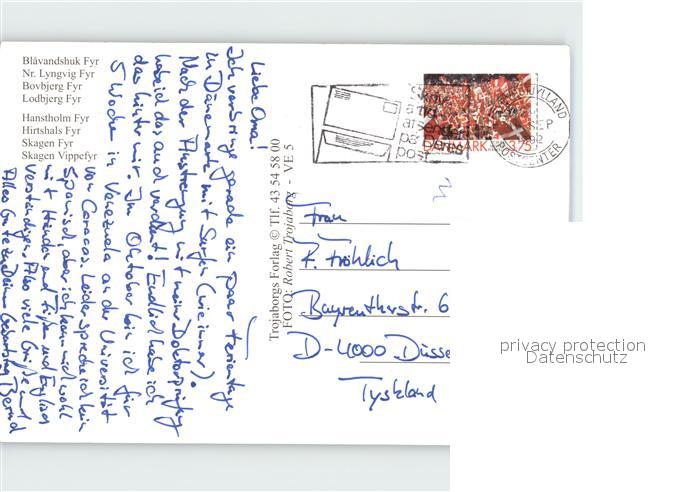 Blåvandshuk Fyr
Nr. Lyngvig Fyr
Bovbjerg Fyr
Lodbjerg Fyr
Hanstholm Fyr
Hirtshals Fyr
Skagen Fyr
Skagen Vippefyr
Liebe Oma!
Ich verbringe gerade ein paar Ferientage
in Dänemark mit Surfen (wie immer).
Nach der Anstrengung mit meiner Doktorprüfung
habe ich das auch verdient! Endlich habe ich
das hinter mir. Im Oktober bin ich für
5 Wochen in Venezuela an der Universität
von Caracas. Leider spreche ich kein
Spanisch, aber ich kann mich wohl
mit Händen und Füßen und Englisch
verständigen. Also viele Grüße und
Alles Gute zu Deinem Geburtstag Bernd
Trojaborgs Forlag © Tlf. 43 54 58 00
FOTO: Robert Trojaborg - VE 5
DANMARK 375
POSTCENTER
Frau
F. Fröhlich
Bayreutherstr. 6
D-4000 Düsse
Tyskland
privacy protection
Datenschutz